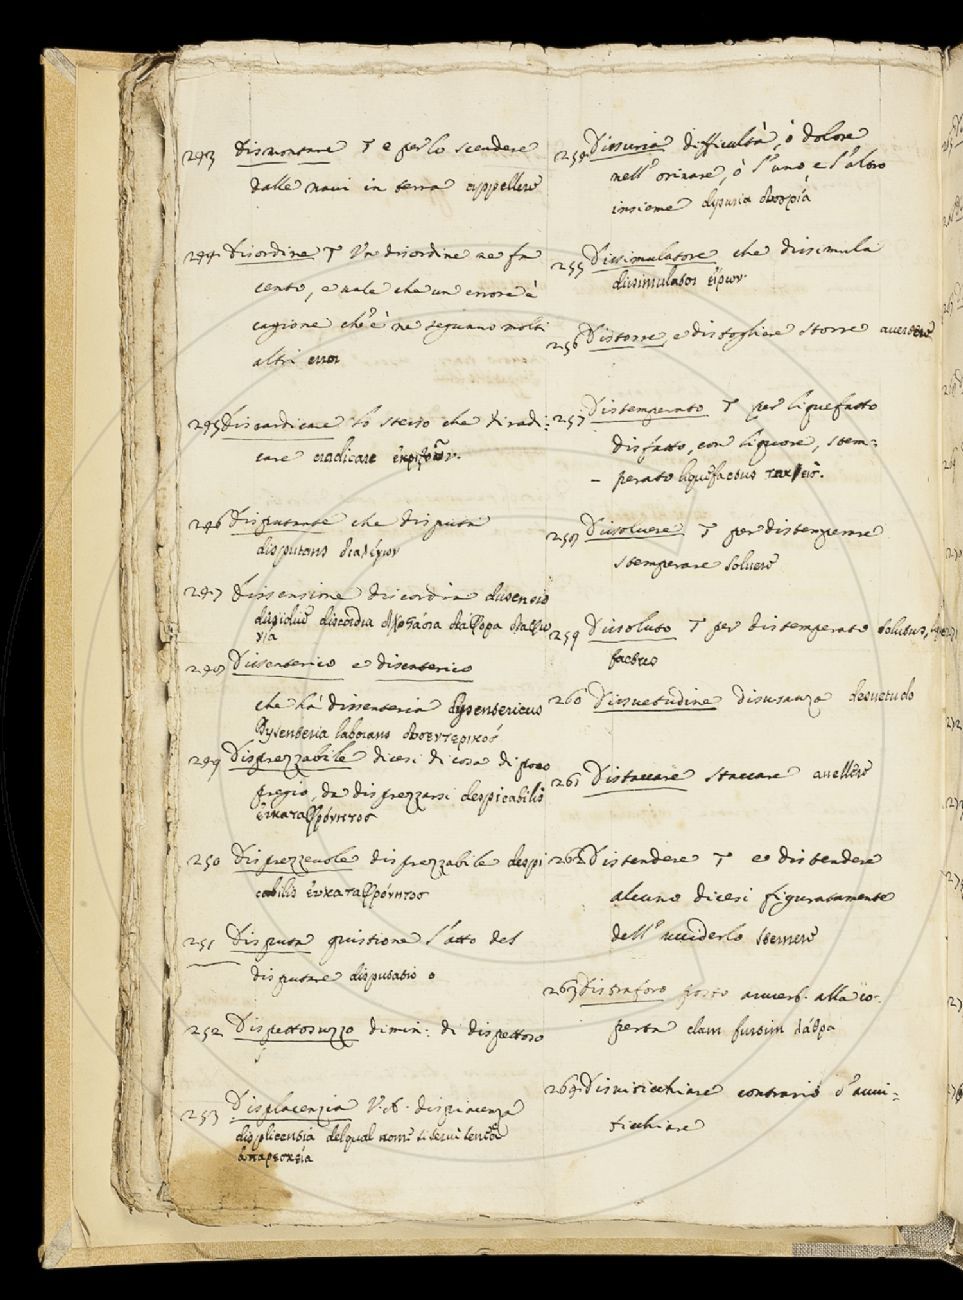 243 dismontare T e per lo scendere
dalle navi in terra appellere
244 disordine T Un disordine ne fa
cento, e vale che un errore è
cagione che è ne seguano molti
altri errori
245 disradicare lo stesso che diradi:
care eradicare
246 disputante che disputa
disputans διαλέγων
247 dissensione discordia dissensio
dissidium discordia διχοστάσια διάφορα διαφω
νία
248 Dissenterico e disenterico
che hà dissenteria dysentericus
Dysenteria laborans δυσεντερικός
249 Disprezzabile dicesi di cosa di poco
pregio, da disprezzarsi despicabilis
ἐυκαταφρόνητοσ
250 Disprezzevole disprezzabile despi
cabilis ἐυκαταφρόνητοσ
251 Disputa quistione l'atto del
disputare disputatio
252 Dispettosuzzo dimin: di dispettoso
253 Displacenzia V.A. dispiacenza
displicentia del qual nom: si servì Seneca
ἀπαρεσκεία
254 Dissuria difficultà, ò dolore
nell'orinare, ò l'uno e l'altro
insieme dysuria δυσρία
255 Dissimulatore che dissimula
dissimulator εἴρων
256 Distorre, e distogliere storre avertere
257 Distemperato T per liquefatto
disfatto, con liquore, stem:
perato liquefactus τακεὶσ.
258 Dissolvere T per distemperare
stemperare solvere
259 Dissoluto T per distemperato solutus, lique
factus
260 Dissuetudine disusanza desuetudo
261 Distaccare staccare avellere
262 Distendere T e distendere
alcuno dicesi figuratamente
dell'ucciderlo sternere
263 Distraforo posto avverb. alla co:
perta clam furtim λάθρα
264 Disviticchiare contrario d'avvi:
ticchiare